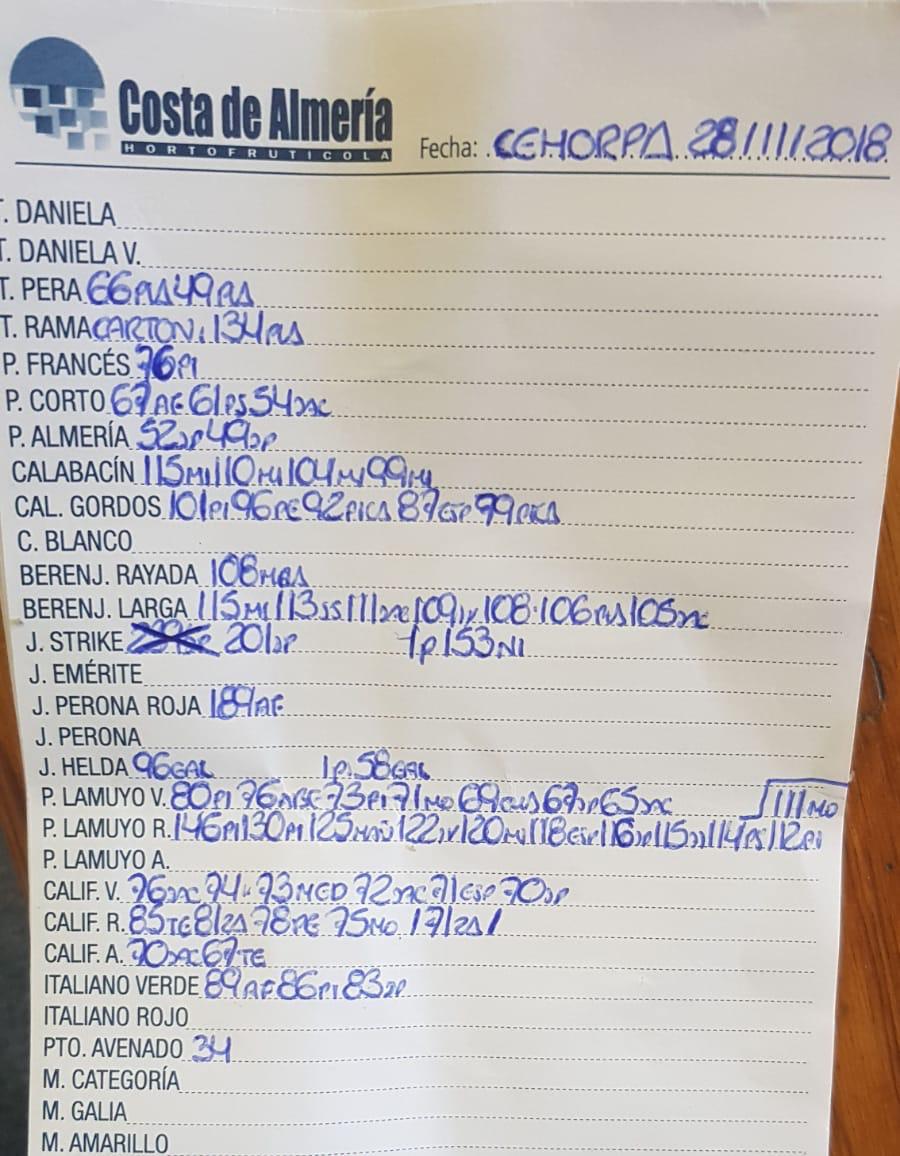 Costa de Almería
HORTOFRUTICOLA
Fecha: CEHORPA 28/11/2018
T. DANIELA
T. DANIELA V.
T. PERA 66PUS 49PUS
T. RAMA CARTON: 134PUS
P. FRANCÉS 76PI
P. CORTO 67AE 61PS 54JAC
P. ALMERÍA 52JP 49JP
CALABACÍN 115MU 110MU 104MU 99MU
CAL. GORDOS 101PI 96PE 92PICA 87ESP 79PICA
C. BLANCO
BERENJ. RAYADA 108MAS
BERENJ. LARGA 115MU 113SS 111JAC 109JV 108 106PUS 105JAC
J. STRIKE 201JP 1p 153NI
J. EMÉRITE
J. PERONA ROJA 189AE
J. PERONA
J. HELDA 96GAL 1p. 58GAL
P. LAMUYO V. 80PI 76ABSE 73PI 71MO 69CUS 67JP 65JAC 111MO
P. LAMUYO R. 146PI 130PI 125MAÑ 122JV 120MU 118ESP 116JP 115JJ 114PS 112PI
P. LAMUYO A.
CALIF. V. 76JAC 74 73MED 72JAC 71ESP 70JP
CALIF. R. 85TE 81ZA 78PE 75MO 171ZA
CALIF. A. 70JAC 67TE
ITALIANO VERDE 89AE 86PI 83JP
ITALIANO ROJO
PTO. AVENADO 34
M. CATEGORÍA
M. GALIA
M. AMARILLO